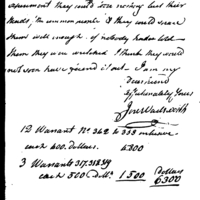 apartment they would soon destroy but their
heads, the common people I they would swear
them well enough if nobody had on told
them they were wretched I think they would
not soon have found it out. I am my
dear friend
affectionately Yours
Jere Wadsworth
12 Warrant No. 342 to 353 inclusive
each 400. Dollars. 4800
3 Warrants 317.318 & 19
each 500 Dolls. 1500 Dollars
6300